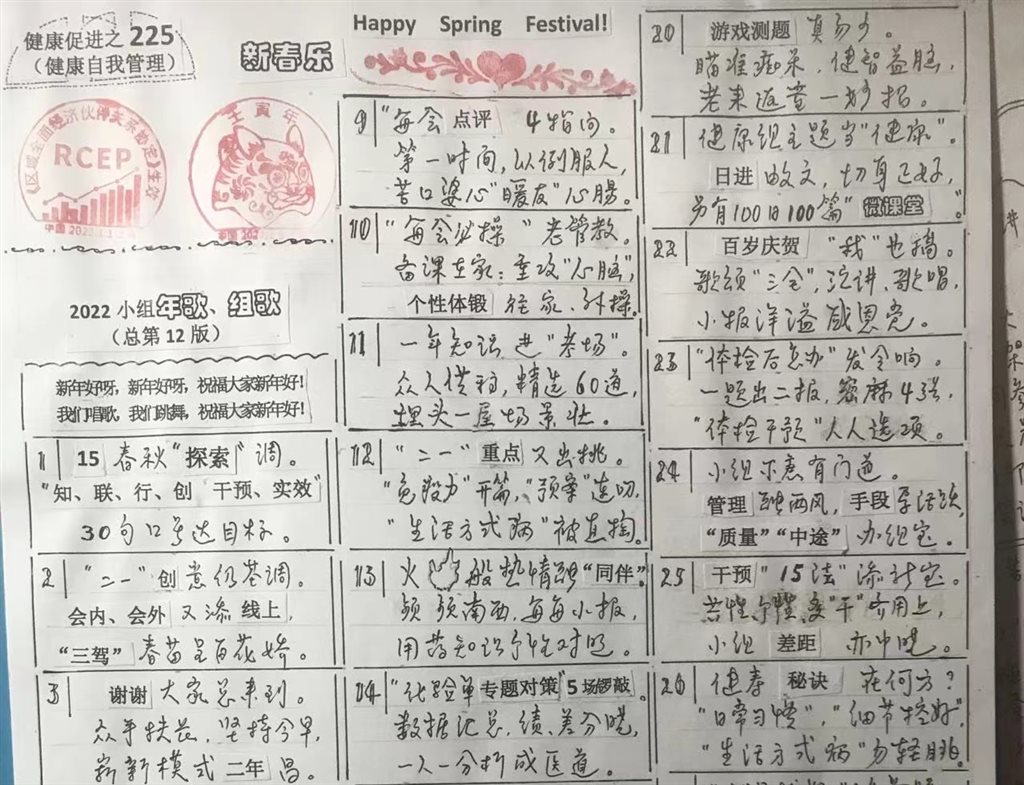 健康促进之 225
（健康自我管理）
新春乐
Happy Spring Festival!
《区域全面经济伙伴关系协定》生效
RCEP
中国 2022.1.1
壬寅年
2022 小组年歌、组歌
（总第 12 版）
新年好呀，新年好呀，祝福大家新年好！
我们唱歌，我们跳舞，祝福大家新年好！
1 15 春秋“探索”调。
“知、联、行、创 干预、实效”
30句口号达目标。
2 “二一”创意仍基调。
会内、会外 又添 线上，
“三驾” 春苗呈百花娇。
3 谢谢 大家总来到。
众手扶苌，坚持今早，
崭新模式 二年 昌。
9 “每会 点评 4指间。
第一时间，以例服人，
苦口婆心“暖友”心肠。
10 “每会必操” 老管教。
备课在家：重攻“心脑”，
个性体锻 在家、外操。
11 一年知识进“考场”。
众人供稿，精选60道，
埋头一屋场景壮。
12 “二一” 重点 又出挑。
“免疫力”开篇，“预案”连叨，
“生活方式病”被直掏。
13 火 般热情融“同伴”。
频频南西，每每小报，
用药知识个性对照。
14 “化验单 专题对策 5 场锣敲。
数据汇总，绩、差分晓，
一人一分析成医道。
20 游戏测题 真易少。
瞄准痴呆，健智益脑，
老来返童一妙招。
21 健康组主题当“健康”。
日进 故文，切身正好，
另有100日100篇“微课堂”。
22 百岁庆贺 “我”也搞。
歌颂“三全”，演讲、歌唱，
小报洋溢感恩党。
23 “体检后怎办”发令响。
一题出二报，密麻43张，
“体检干预”人人选项。
24 小组示意有门道。
管理 融西风，手段 导活跃，
“质量”“中途” 办组宝。
25 干预 “15法”添计宝。
苦性、个性、变“干”齐用上，
小组 差距 亦中晓。
26 健寿 秘诀 在何方？
“日常习惯”，“细节控好”，
“生活方式病”另轻眺。